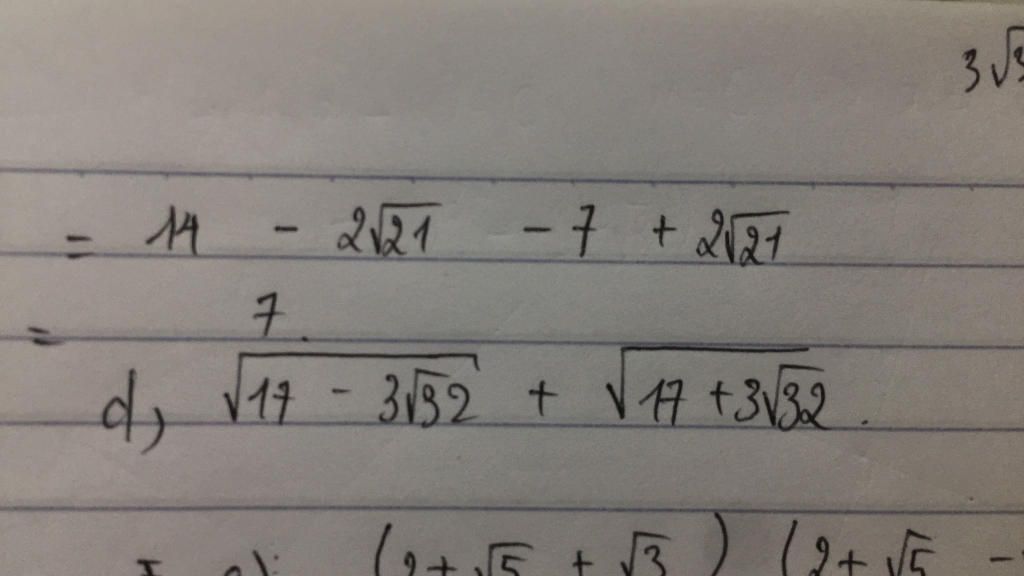 3√3
= 14 - 2√21 - 7 + 2√21
= 7.
d, √(17 - 3√32) + √(17 + 3√32).
(2 + √5 + √3) (2 + √5 -